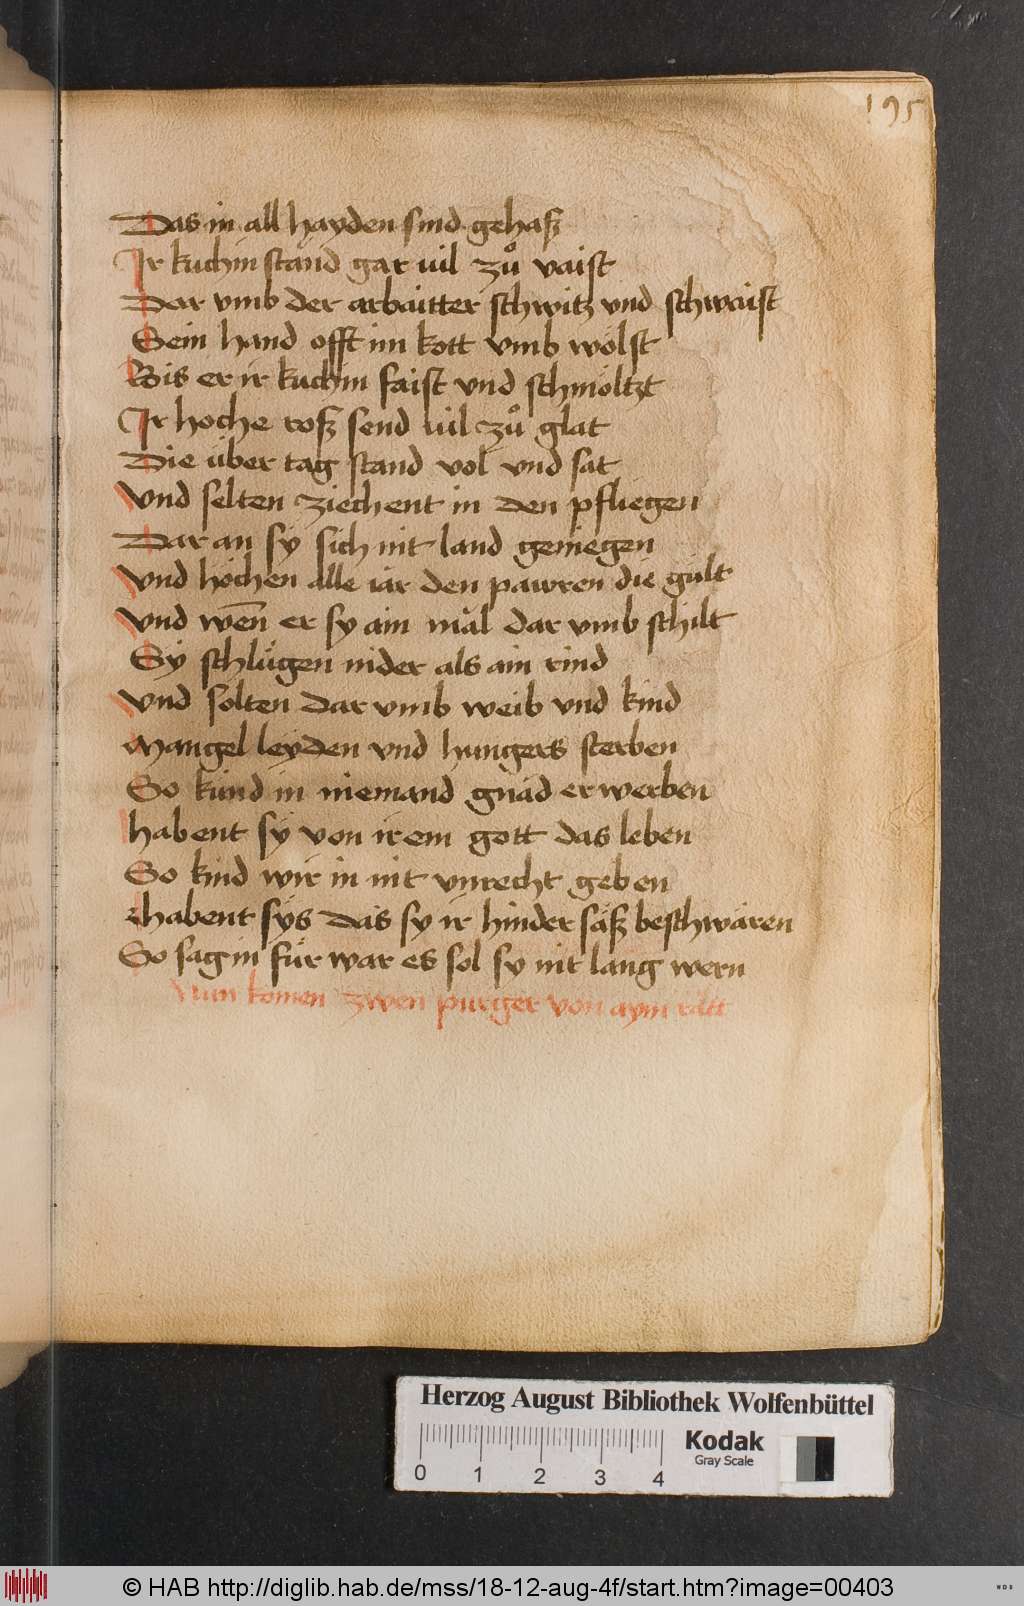 195
Das in all hayden sind gehaß
Ir kuchin stand gar uil zů vaist
Dar vmb der arbaitter schwitz vnd schwaist
Sein hand offt im kott vmb wölst
Bis er ir kuchin faist vnd schmöltzt
Ir hoche roß send uil zů glat
Die über tag stand vol vnd sat
Vnd selten ziechent in den pfliegen
Dar an sy sich nit land geniegen
Vnd höchen alle iar den pawren die gült
Vnd weñ er sy ain mal dar vmb schilt
Sy schlügen nider als ain rind
Vnd solten dar vmb weib vnd kind
Mangel leyden vnd hungers sterben
So kund in niemand gnad erwerben
habent sy von irem gott das leben
So kind wir in nit vnrecht geben
habent sys das sy ir hinder säß beschwären
So sag in für war es sol sy nit lang wern
Nun komen zwen purger von aym ratt
Herzog August Bibliothek Wolfenbüttel
Kodak
Gray Scale
0 1 2 3 4
© HAB http://diglib.hab.de/mss/18-12-aug-4f/start.htm?image=00403